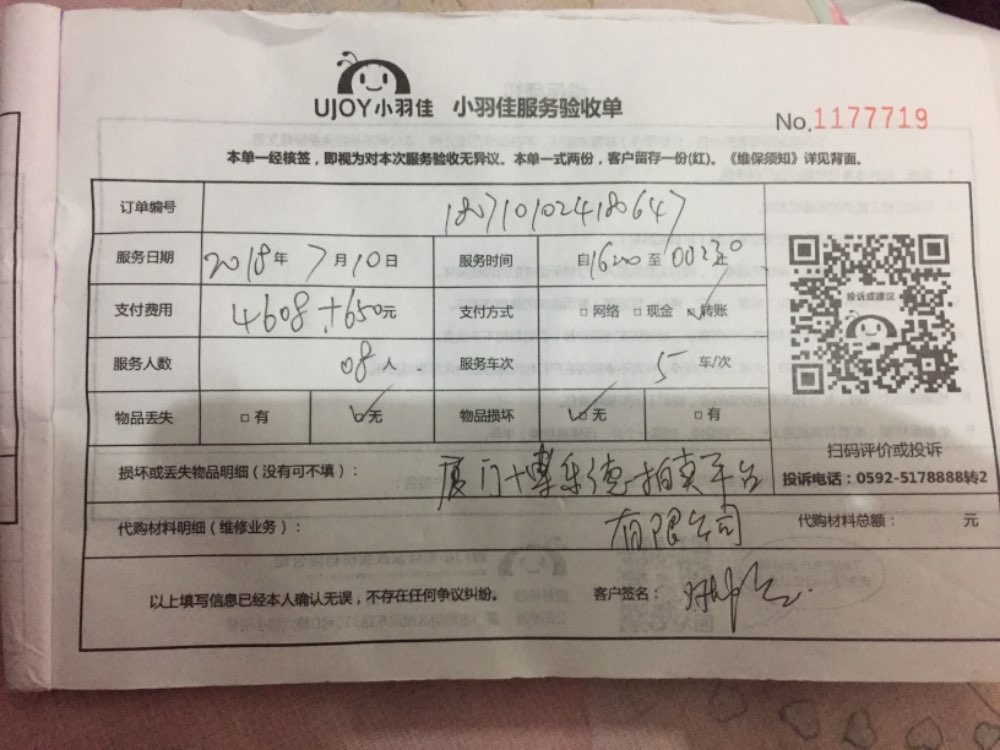 UJOY小羽佳 小羽佳服务验收单
No.1177719
本单一经核签，即视为对本次服务验收无异议。本单一式两份，客户留存一份(红)。《维保须知》详见背面。
订单编号 1807101024180647
服务日期 2018年 7月10日 服务时间 自1620至0023
支付费用 4608+650元 支付方式 □ 网络 □ 现金 ☑ 转账
投诉或建议
服务人数 08人 服务车次 5 车/次
物品丢失 □ 有 ☑ 无 物品损坏 ☑ 无 □ 有
扫码评价或投诉
损坏或丢失物品明细（没有可不填）： 厦门博乐德拍卖平台
投诉电话：0592-5178888转2
代购材料明细（维修业务）： 有限公司 代购材料总额： 元
以上填写信息已经本人确认无误，不存在任何争议纠纷。 客户签名：